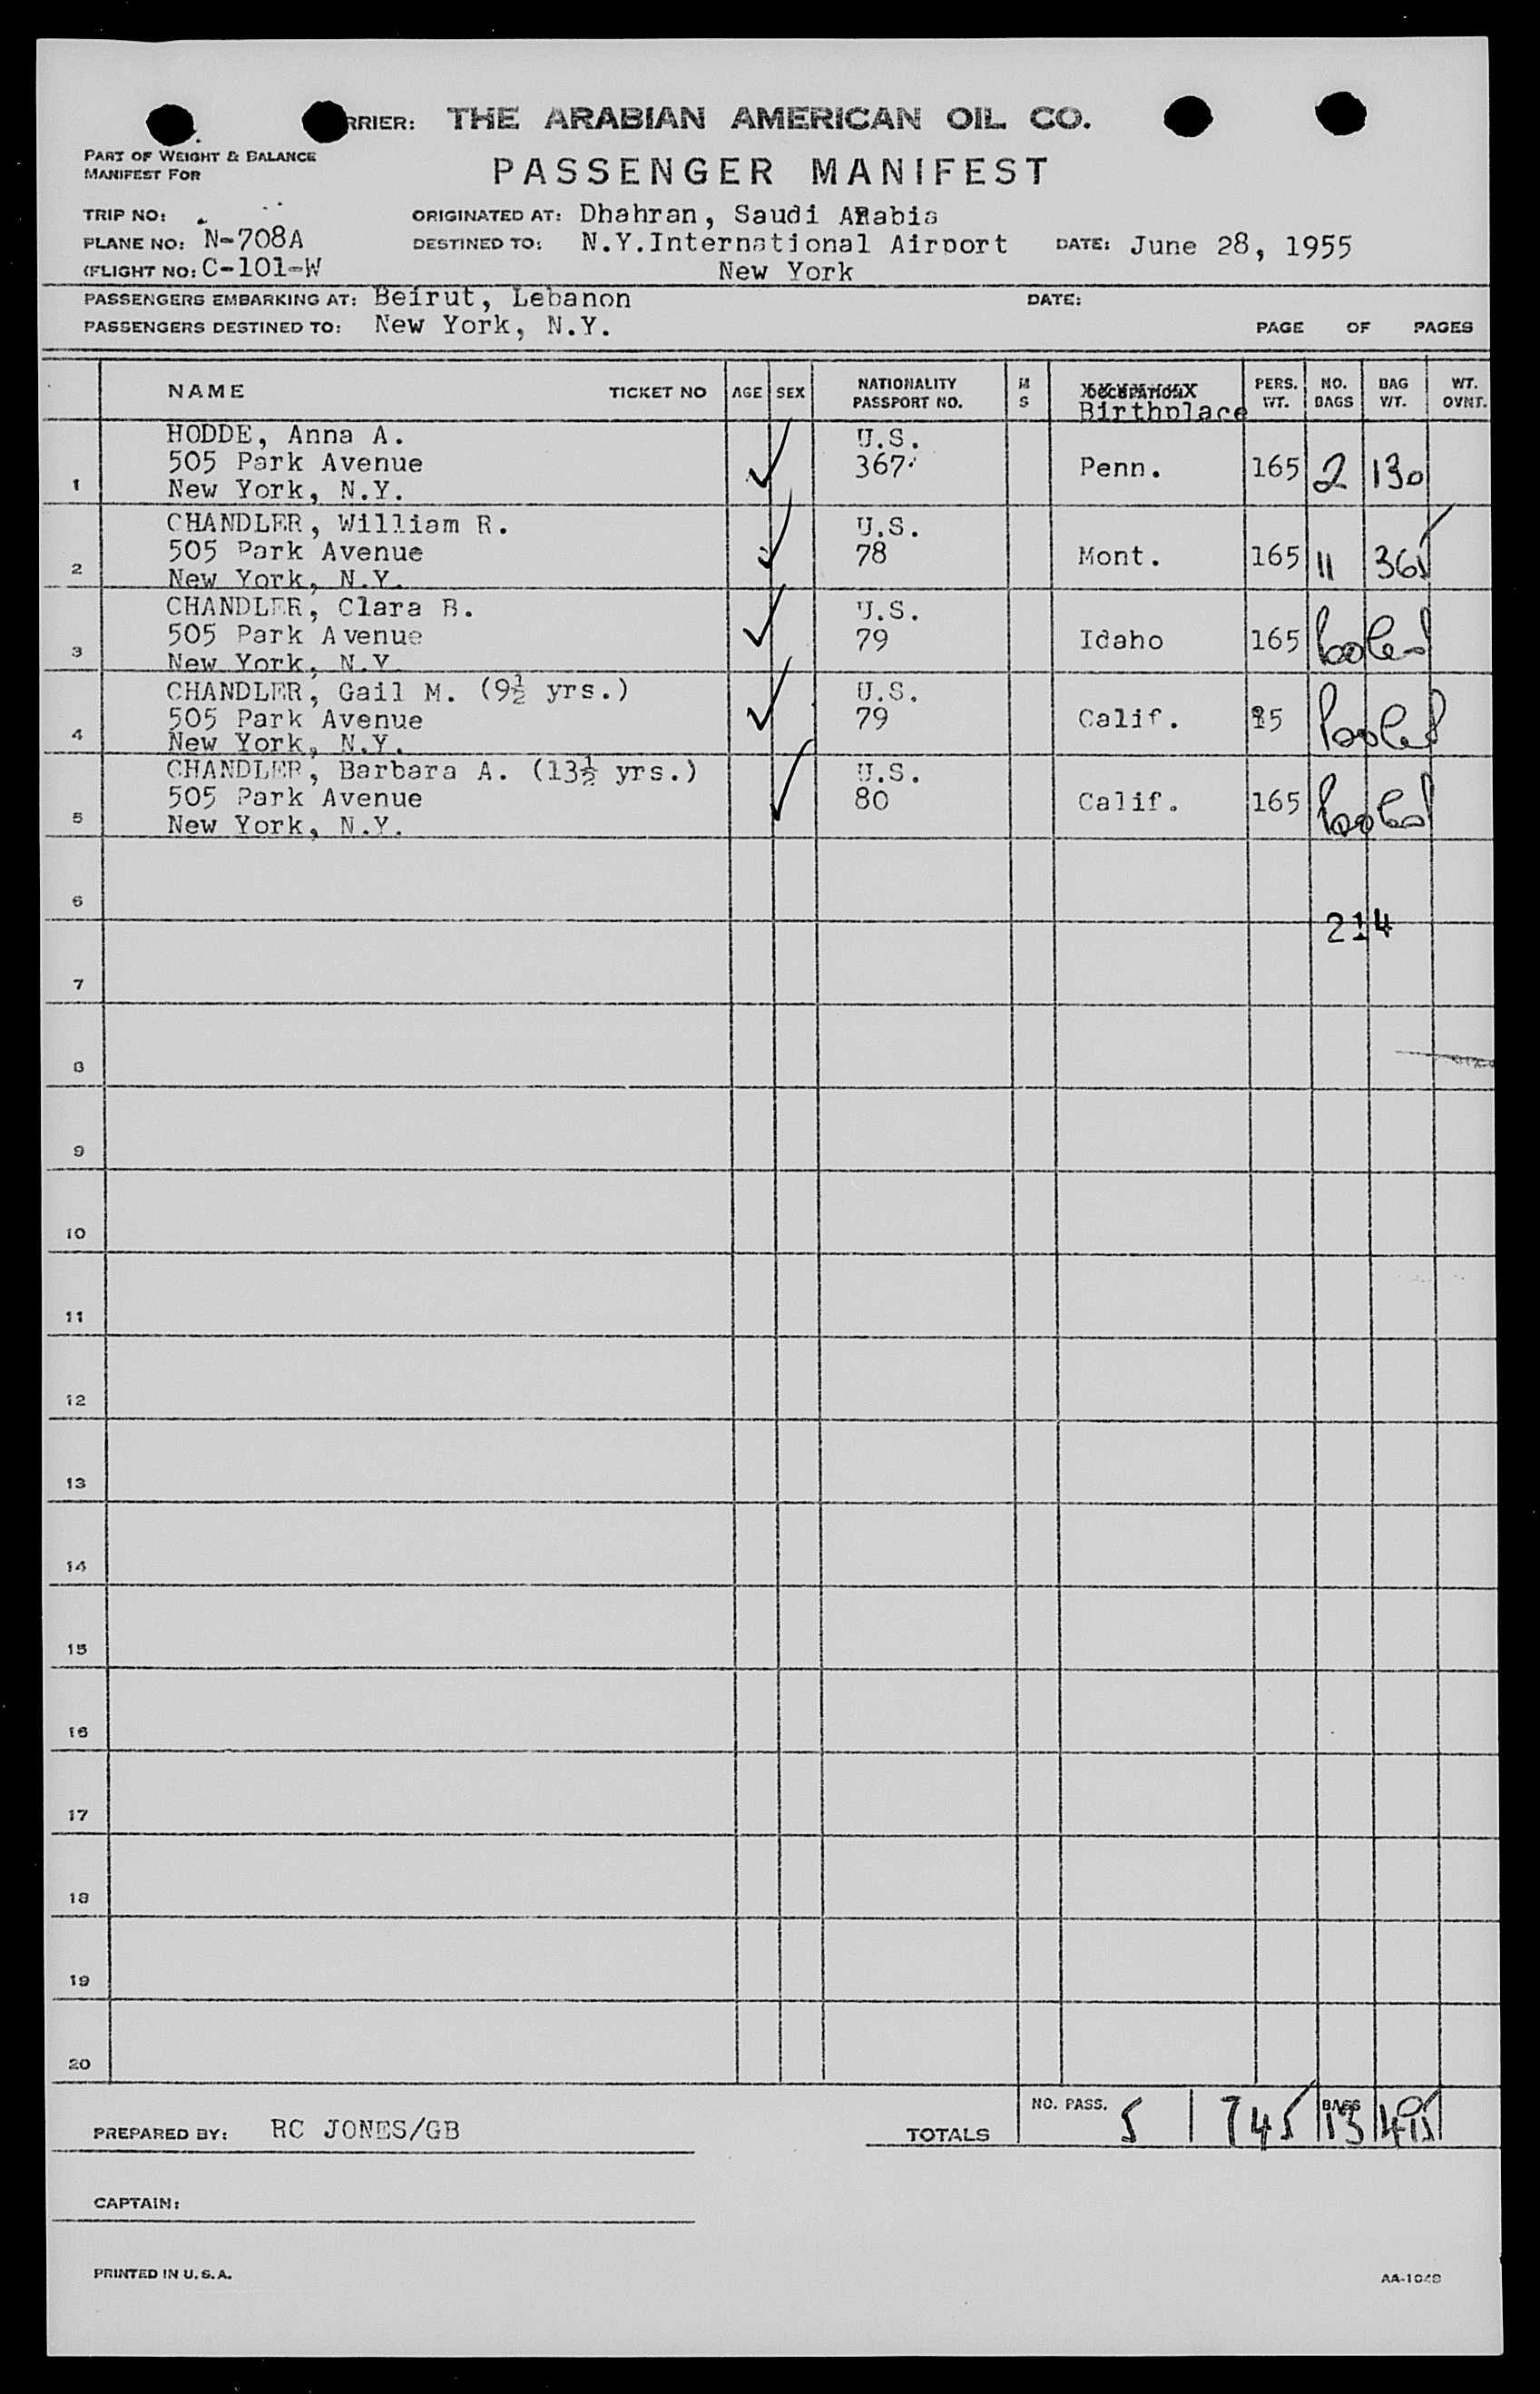 RRIER: THE ARABIAN AMERICAN OIL CO.
PART OF WEIGHT & BALANCE
MANIFEST FOR
PASSENGER MANIFEST
TRIP NO:
ORIGINATED AT: Dhahran, Saudi ARabia
PLANE NO: N-708A
DESTINED TO: N.Y.International Airport DATE: June 28, 1955
(FLIGHT NO: C-101-W
New York
PASSENGERS EMBARKING AT: Beirut, Lebanon DATE:
PASSENGERS DESTINED TO: New York, N.Y. PAGE OF PAGES
NAME TICKET NO AGE SEX NATIONALITY PASSPORT NO. M S OCCUPATION Birthplace PERS. WT. NO. BAGS BAG WT. WT. OVNT.
HODDE, Anna A. U.S.
505 Park Avenue 367 Penn. 165 2 130
1 New York, N.Y.
CHANDLER, William R. U.S.
505 Park Avenue 78 Mont. 165 11 365
2 New York, N.Y.
CHANDLER, Clara B. U.S.
505 Park Avenue 79 Idaho 165 pooled
3 New York, N.Y
CHANDLER, Gail M. (9½ yrs.) U.S.
505 Park Avenue 79 Calif. 85 pooled
4 New York, N.Y.
CHANDLER, Barbara A. (13½ yrs.) U.S.
505 Park Avenue 80 Calif. 165 pooled
5 New York, N.Y.
6
214
7
8
9
10
11
12
13
14
15
16
17
18
19
20
PREPARED BY: RC JONES/GB TOTALS NO. PASS. 5 745 BAGS 13 495
CAPTAIN:
PRINTED IN U.S.A. AA-1048